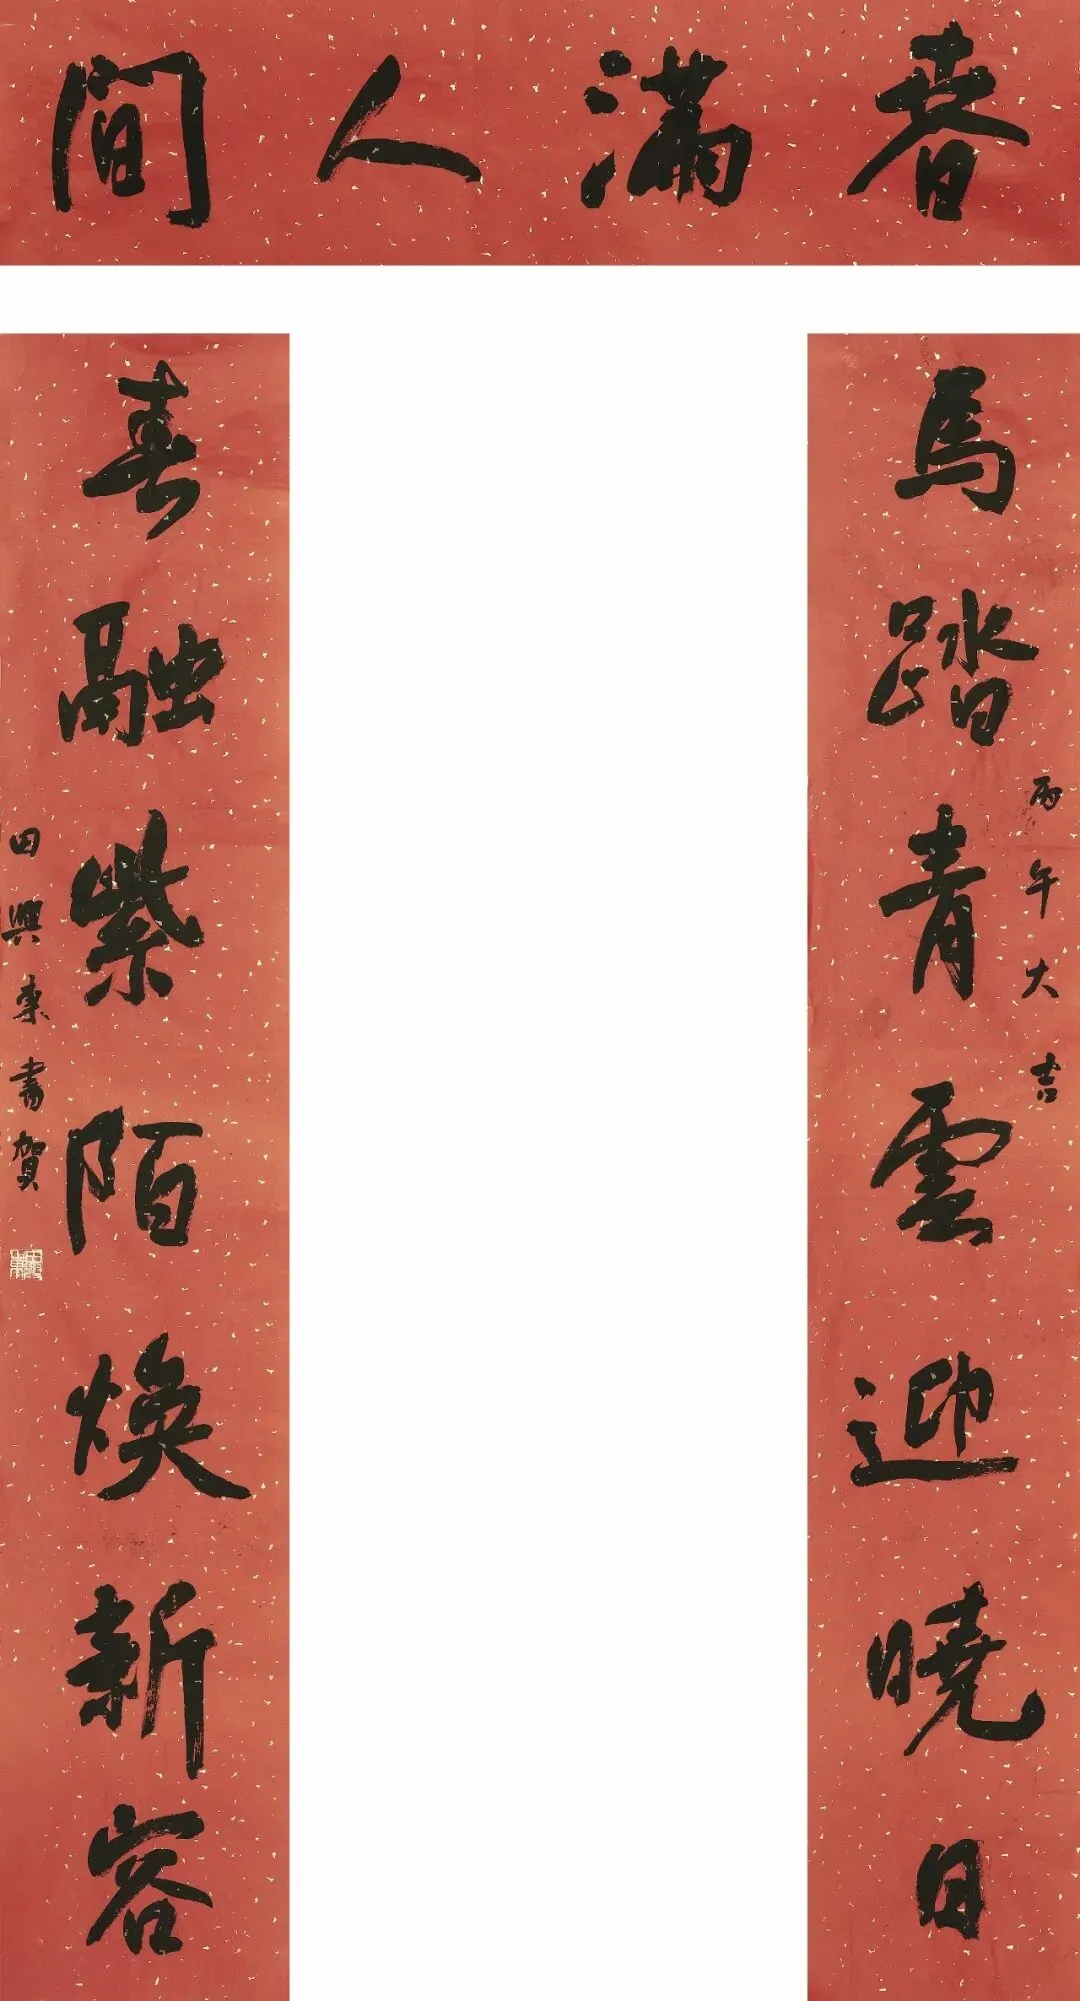 春滿人間
馬踏青雲迎曉日
丙午大吉
春融紫陌煥新容
田興東書賀